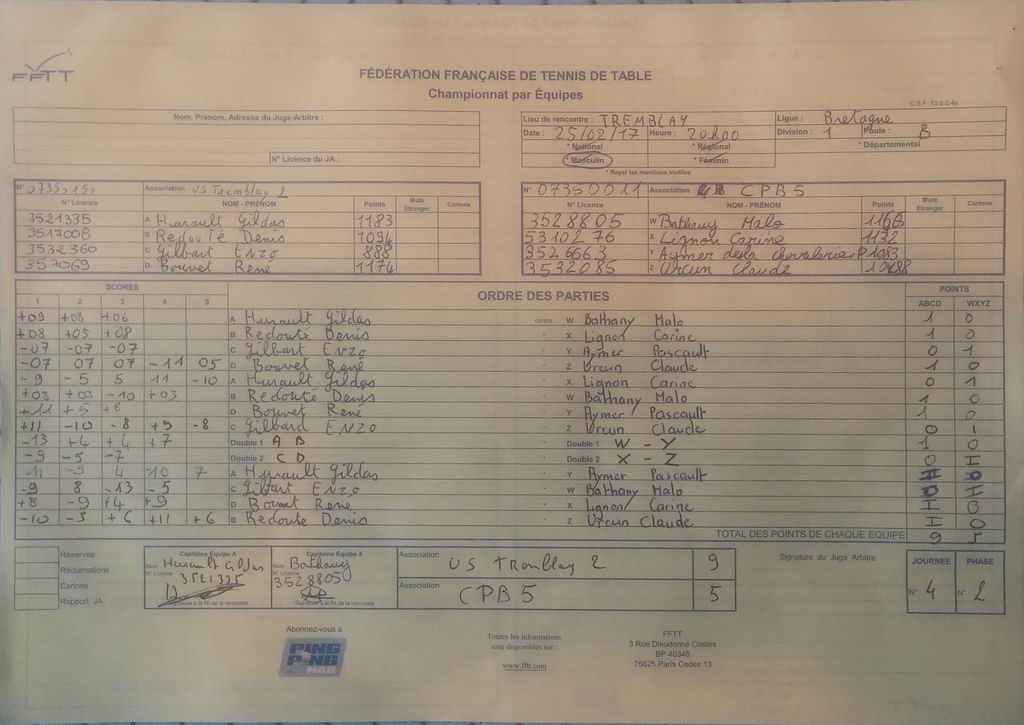 FFTT
FÉDÉRATION FRANÇAISE DE TENNIS DE TABLE
Championnat par Équipes
C.S.F. 13.2.0.4a
Nom, Prénom, Adresse du Juge-Arbitre :
N° Licence du JA :
Lieu de rencontre : TREMBLAY Ligue : Bretagne
Date : 25/02/17 Heure : 20h00 Division : 1 Poule : B
* National * Régional * Départemental
* Masculin * Féminin
* Rayer les mentions inutiles
N° 07350150 Association US Tremblay 2
N° Licence NOM - PRÉNOM Points Muté Etranger Cartons
3521335 A Hurault Gildas 1183
3517008 B Redouté Denis 1094
3532360 C Gilbart Enzo 888
357069 D Bouvet René 1174
N° 07350011 Association CPB 5
N° Licence NOM - PRÉNOM Points Muté Etranger Cartons
3528805 W Bathany Malo 1166
5310276 X Lignon Carine 1132
3526663 Y Aymer de la chevalerie P 1083
3532085 Z Urcun Claude
SCORES ORDRE DES PARTIES POINTS
1 2 3 4 5 ABCD WXYZ
+09 +08 +06 A Hurault Gildas contre W Bathany Malo 1 0
+08 +05 +08 B Redouté Denis " X Lignon Carine 1 0
-07 -07 -07 C Gilbart Enzo " Y Aymer Pascault 0 1
-07 07 07 -11 05 D Bouvet René " Z Urcun Claude 1 0
-9 -5 5 11 -10 A Hurault Gildas " X Lignon Carine 0 1
+03 +03 -10 +03 B Redouté Denis " W Bathany Malo 1 0
+11 +5 +8 D Bouvet René " Y Aymer Pascault 1 0
+11 -10 -8 +9 -8 C Gilbard Enzo " Z Urcun Claude 0 1
-13 +4 +4 +7 Double 1 A B " Double 1 W - Y 1 0
-9 -5 -7 Double 2 C D " Double 2 X - Z 0 I
11 -5 4 -10 7 A Hurault Gildas " Y Aymer Pascault
-9 8 -13 -5 C Gilbart Enzo " W Bathany Malo
+8 -9 +4 +9 D Bouvet René " X Lignon Carine I 0
-10 -5 +6 +11 +6 B Redouté Denis " Z Urcun Claude I 0
TOTAL DES POINTS DE CHAQUE EQUIPE 9 5
Réserves
Réclamations
Cartons
Rapport JA
Capitaine Équipe A
Nom Hurault Gildas
N° Licence 3521335
Signature à la fin de la rencontre
Capitaine Équipe X
Nom Bathany
N° Licence 3528805
Signature à la fin de la rencontre
Association US Tremblay 2 9
Association CPB 5 5
Signature du Juge Arbitre
JOURNEE PHASE
N° 4 N° 2
Abonnez-vous à
PING PONG MAG
Toutes les informations
sont disponibles sur :
www.fftt.com
FFTT
3 Rue Dieudonné Costes
BP 40348
75625 Paris Cedex 13